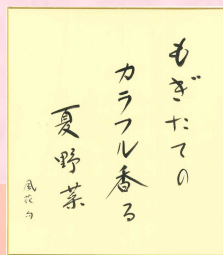 もぎたての
カラフル香る
夏野菜
風花